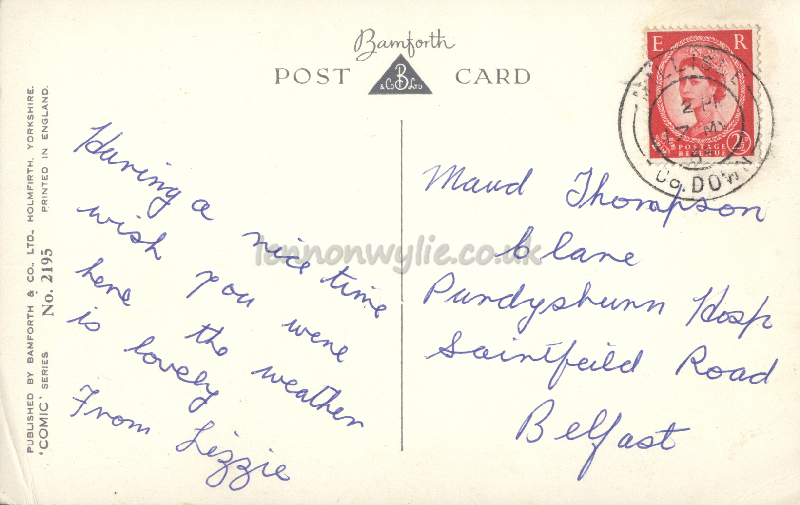 Bamforth
POST CARD
B
& Co LTD
E R
POSTAGE
REVENUE
2 PM
7 MY
Co. DOWN
PUBLISHED BY BAMFORTH & CO., LTD., HOLMFIRTH, YORKSHIRE.
PRINTED IN ENGLAND.
'COMIC' SERIES No. 2195
Having a nice time
wish you were
here the weather
is lovely
From Lizzie
Maud Thompson
6 lane
Purdysburn Hosp
Saintfeild Road
Belfast
lennonwylie.co.uk